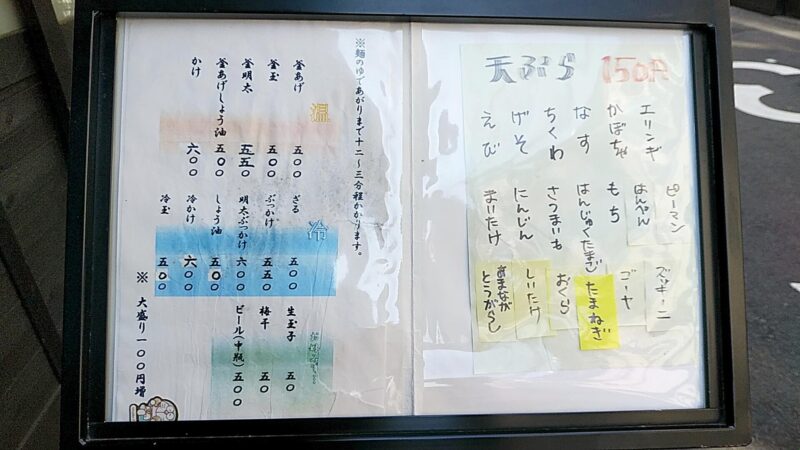 天ぷら 150円
エリンギ
かぼちゃ
なす
ちくわ
げそ
えび
ピーマン
はんぺん
もち
はんじゅくたまご
さつまいも
にんじん
まいたけ
ズッキーニ
ゴーヤ
たまねぎ
おくら
しいたけ
あまながとうがらし
※麺のゆであがりまで十二〜三分程かかります。
温
釜あげ 五〇〇
釜玉 五〇〇
釜明太 五五〇
釜あげしょう油 五〇〇
かけ 六〇〇
冷
ざる 五〇〇
ぶっかけ 五五〇
明太ぶっかけ 六〇〇
しょう油 五〇〇
冷かけ 六〇〇
冷玉 五〇〇
生玉子 五〇
梅干 五〇
ビール(中瓶) 五〇〇
※ 大盛り一〇〇円増